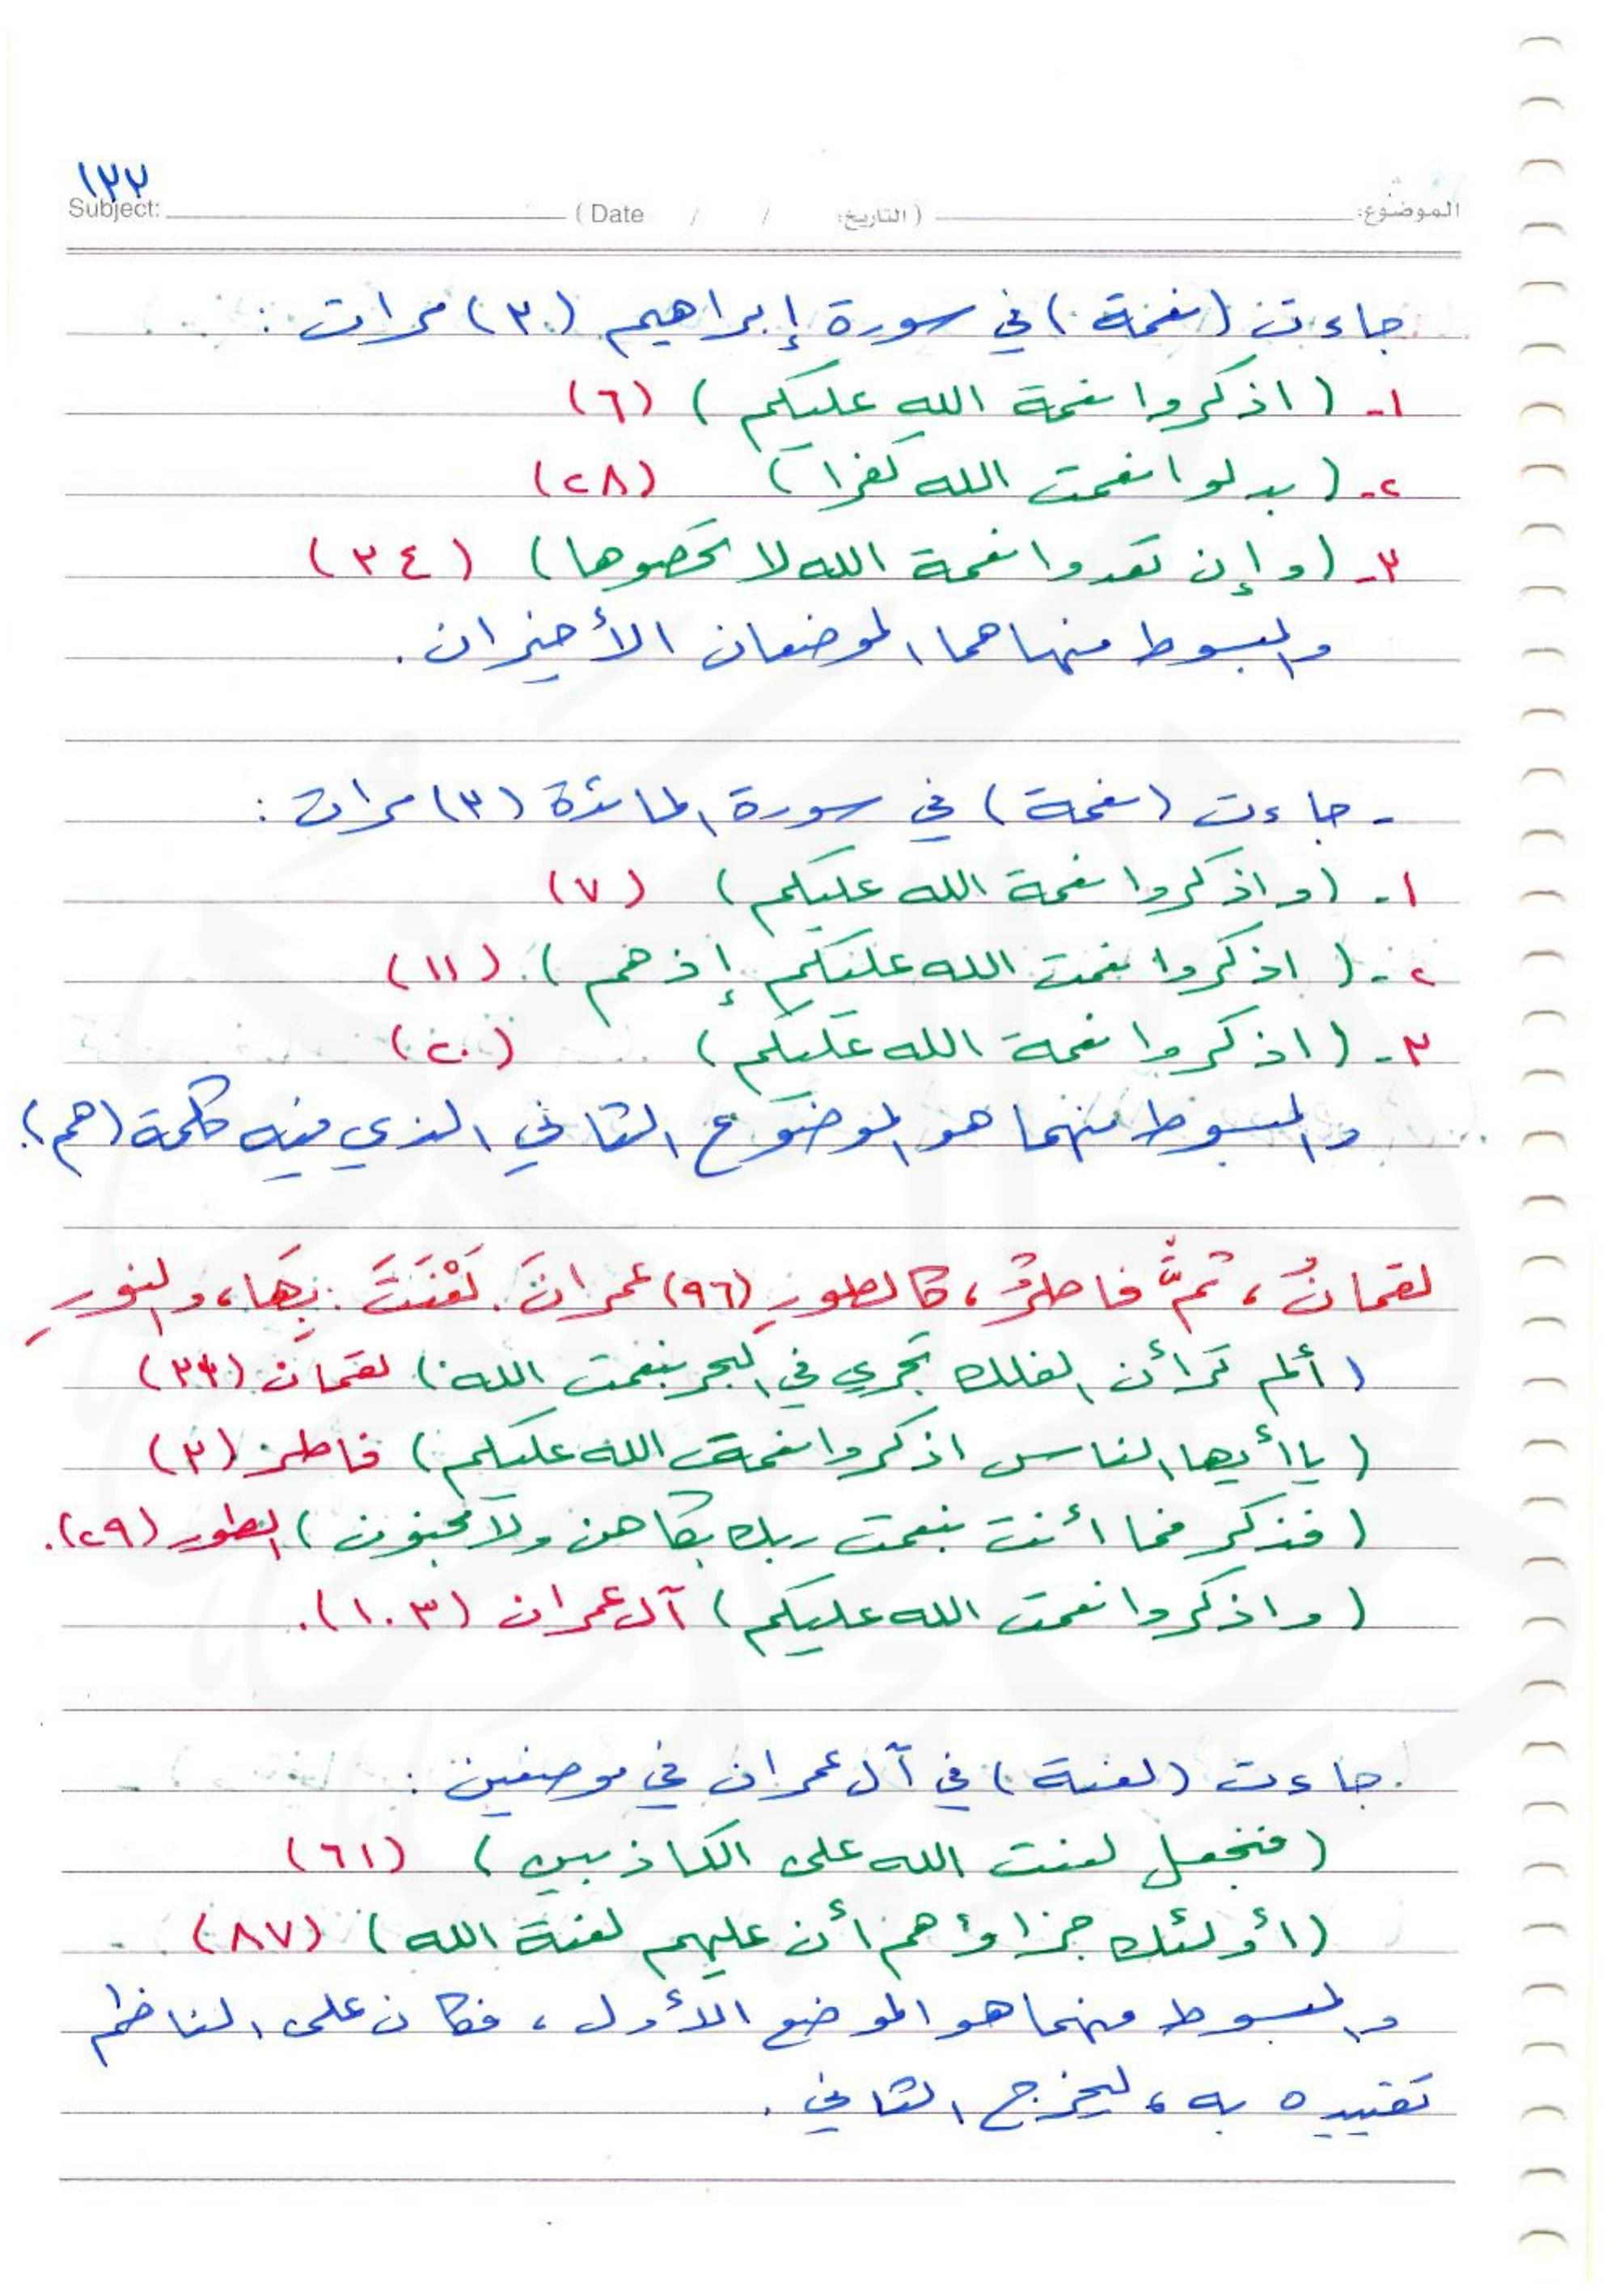 ١٣٢
الموضوع: (التاريخ: / / Date) Subject:
جاءت (نعمة) في سورة إبراهيم (٣) مرات :
١- (اذكروا نعمة الله عليكم) (٦)
٢- (بدلوا نعمت الله كفرا) (٢٨)
٣- (وإن تعدوا نعمة الله لا تحصوها) (٣٤)
والمبسوط منها هما الموضعان الأخيران.
- جاءت (نعمة) في سورة المائدة (٣) مرات :
١- (واذكروا نعمة الله عليكم) (٧)
٢- (اذكروا نعمت الله عليكم إذ هم) (١١)
٣- (اذكروا نعمة الله عليكم) (٢٠)
والمبسوط منهما هو الموضوع الثاني الذي فيه كلمة (هم).
لقمانُ، ثمَّ فاطرٌ، كالطورِ (٩٦) عمرانَ. لَعْنَتَ: بِهَا، والنورِ
(ألم تر أن الفلك تجري في البحر بنعمت الله) لقمان (٣١)
(يا أيها الناس اذكروا نعمت الله عليكم) فاطر (٣)
(فذكر فما أنت بنعمت ربك بكاهن ولا مجنون) الطور (٢٩).
(واذكروا نعمت الله عليكم) آل عمران (١٠٣).
جاءت (لعنة) في آل عمران في موضعين :
(فنجعل لعنت الله على الكاذبين) (٦١)
(أولئك جزاؤهم أن عليهم لعنة الله) (٨٧)
والمبسوط منهما هو الموضع الأول، فكان على الناظم
تقييده به، ليخرج الثاني.